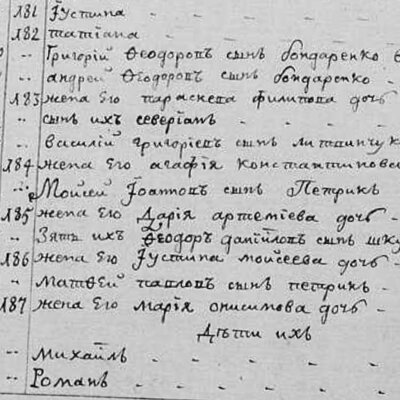 181 Іустина
182 татіана
" Григорій Ѳеодоровъ сынъ бондаренко
" андрей Ѳеодоровъ сынъ бондаренко -
183 жена Его параскева филипова дочь
" сынъ ихъ северіанъ - - - -
" Василій григоріевъ сынъ литвинчук
184 жена Его агафія константинова
" Мойсей Іоанновъ сынъ Петрикъ
185 жена Его Дарія артеміева дочь -
" Зять ихъ Ѳеодоръ даніиловъ сынъ
186 жена Его Іустина моисеева дочь -
" матѳей павловъ сынъ петрикъ -
187 жена Его марія онисимова дочь -
Дѣти ихъ
" михаилъ - - - - -
" Романъ - - - - -